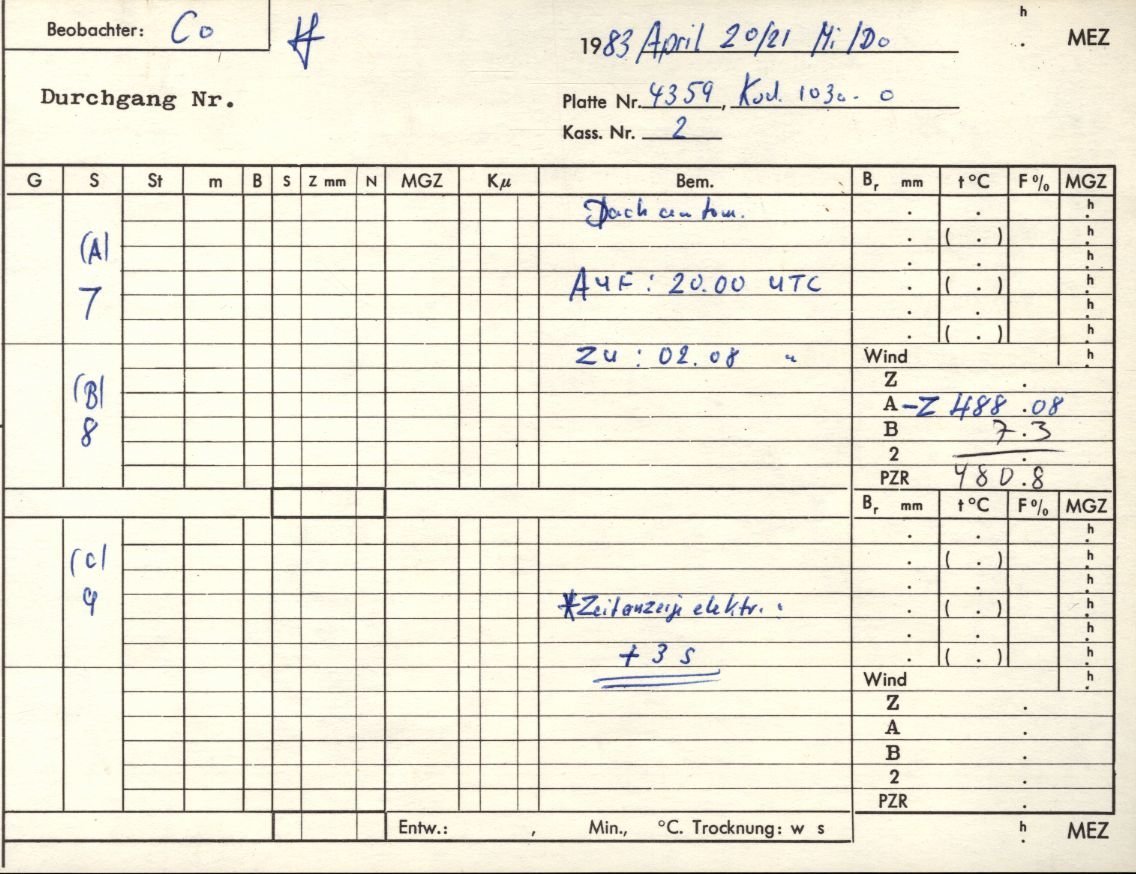 Beobachter: Co
1983 April 20/21 Mi/Do
h . MEZ
Durchgang Nr.
Platte Nr. 4359, Kod. 103a-O
Kass. Nr. 2
G S St m B S Z mm N MGZ Kμ Bem. Br mm t °C F % MGZ
Dach autom.
. . h
(A)
. ( . ) h
. . h
7 Auf : 20.00 UTC
. ( . ) h
. . h
. ( . ) h
Zu : 02.08 "
Wind h
(B)
Z .
8
A -Z 488.08
B 7.3
2 .
PZR 480.8
Br mm t °C F % MGZ
. . h
(C)
. ( . ) h
. . h
9 *Zeitanzeige elektr. :
. ( . ) h
. . h
+ 3 s
. ( . ) h
Wind h
Z .
A .
B .
2 .
PZR .
Entw.: , Min., °C. Trocknung: w s
h . MEZ